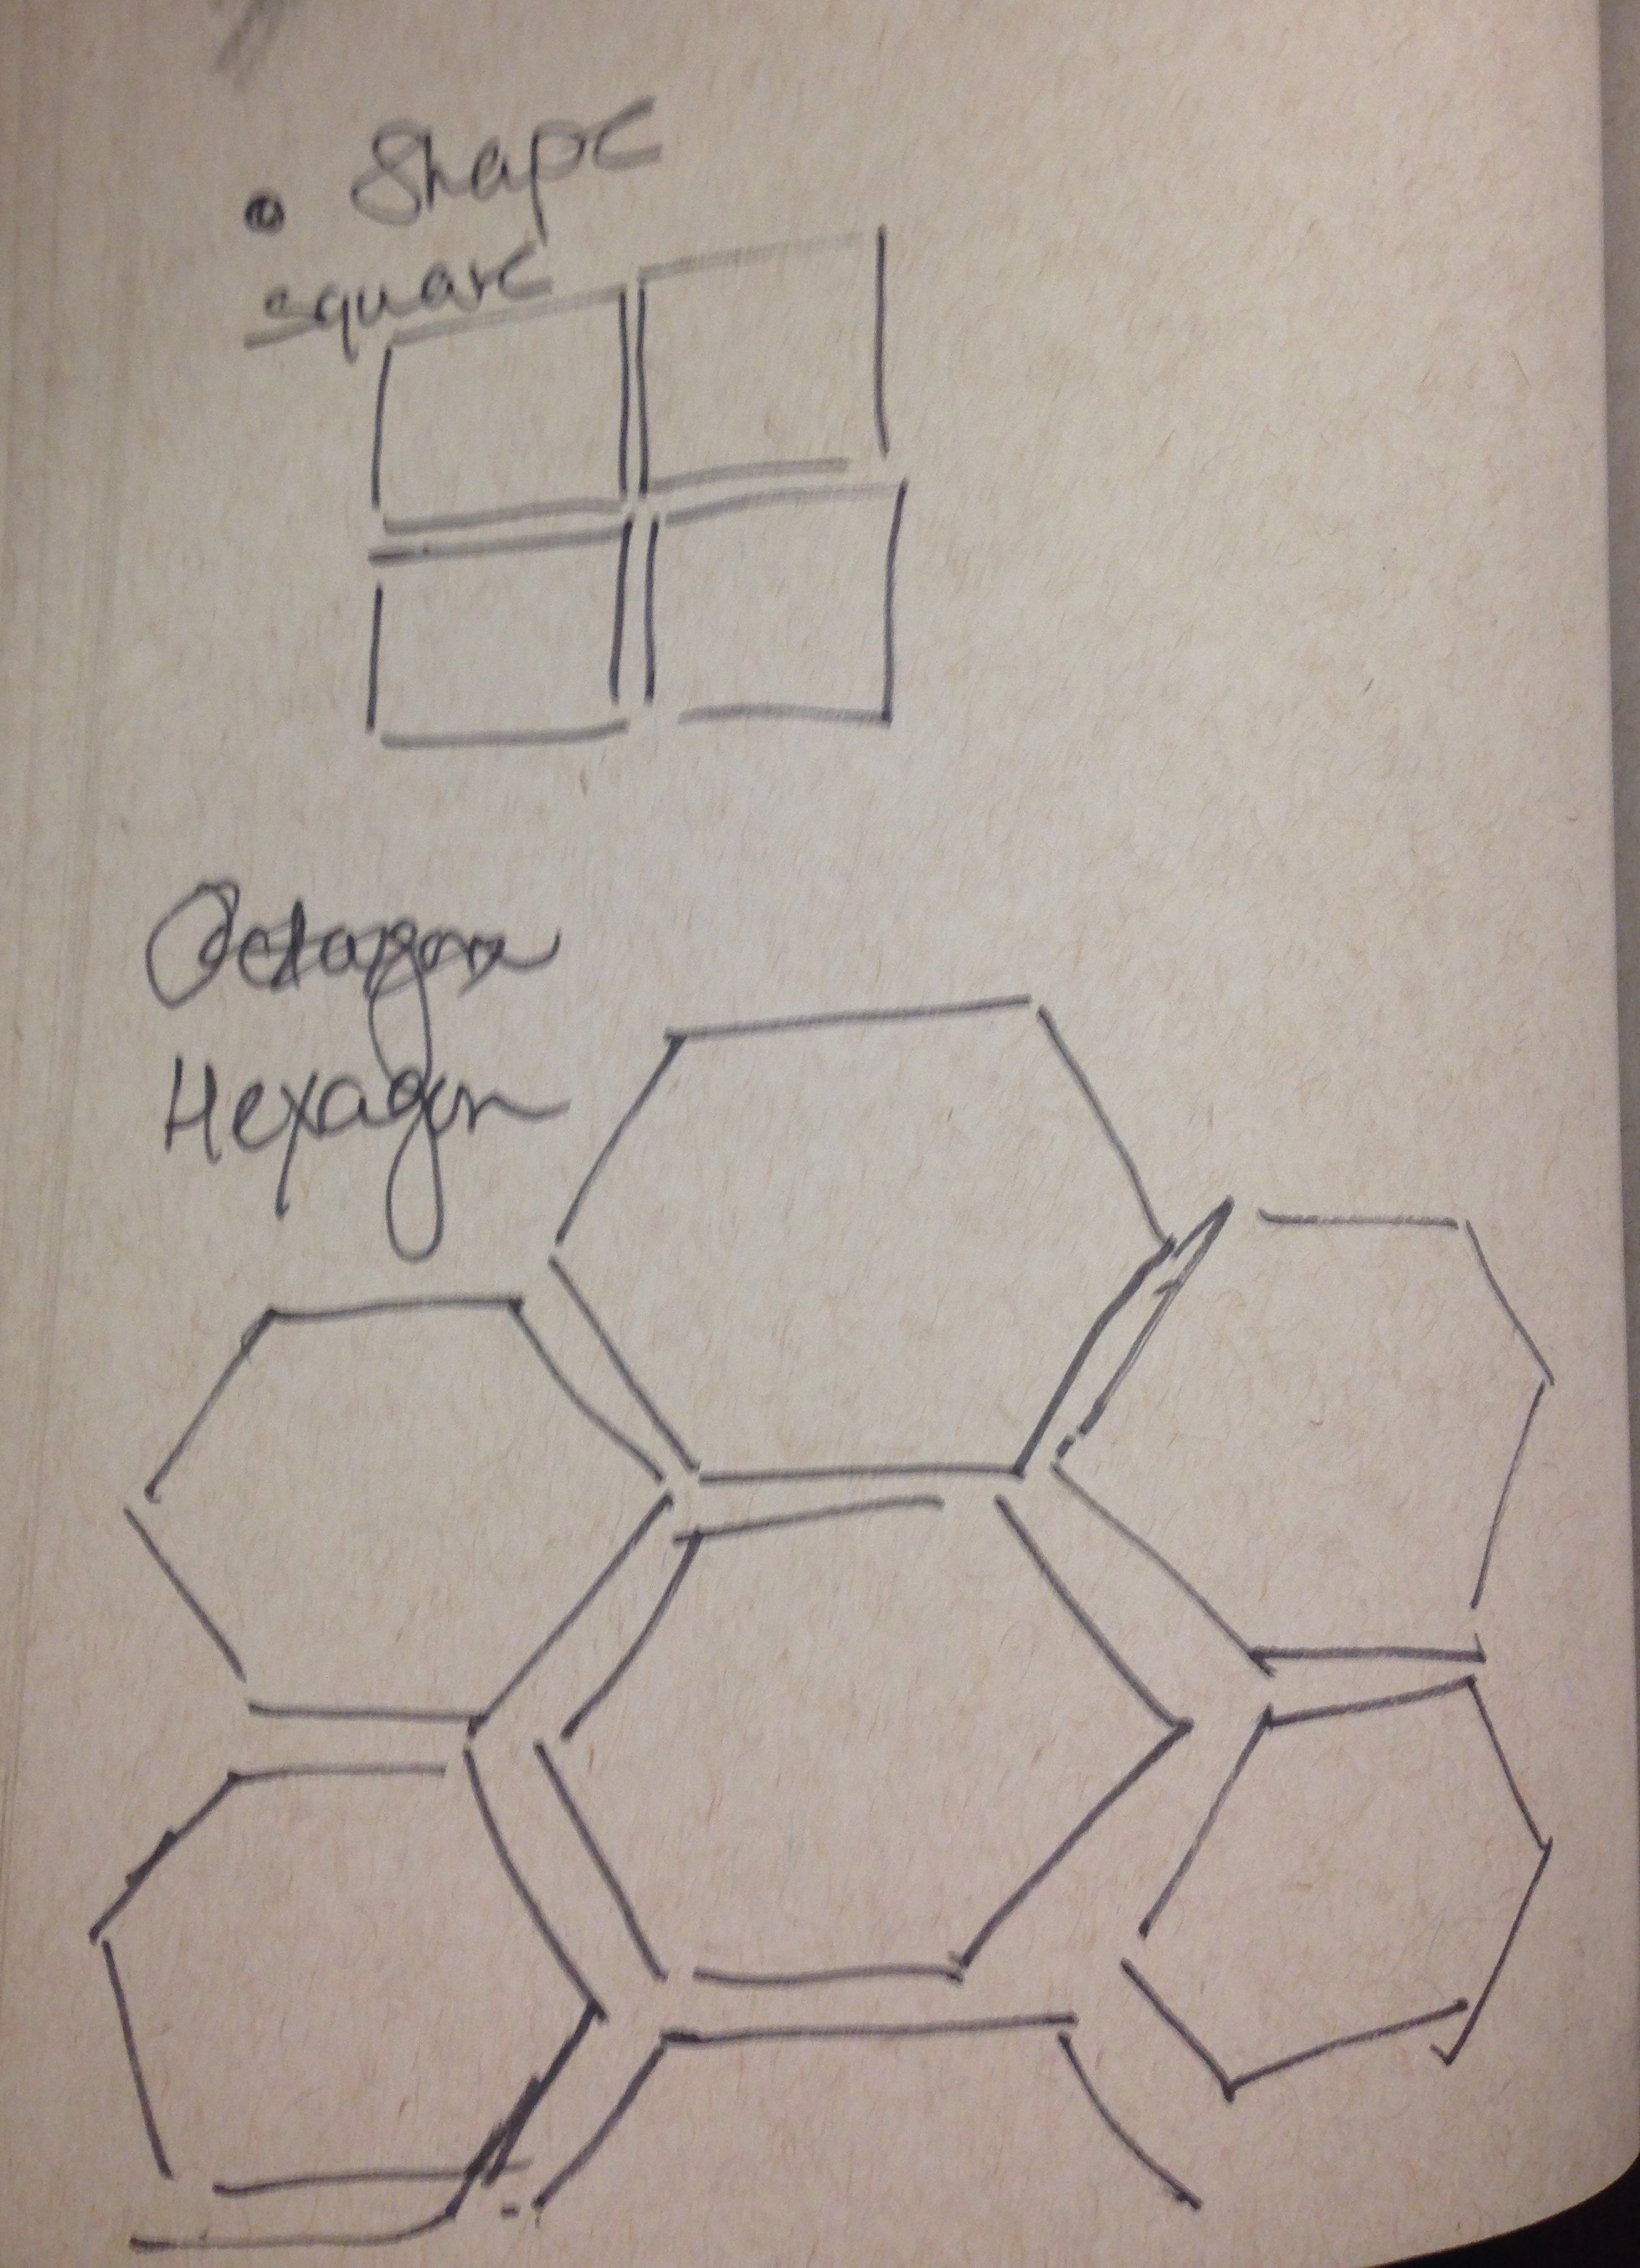 • Shape
square
Octagon
Hexagon